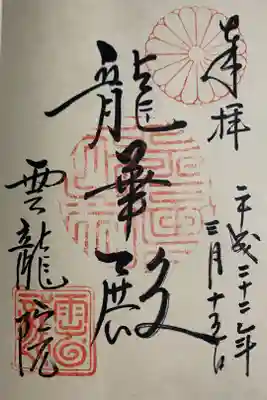 奉拝
平成二十二年
三月十五日
龍華殿
雲龍院